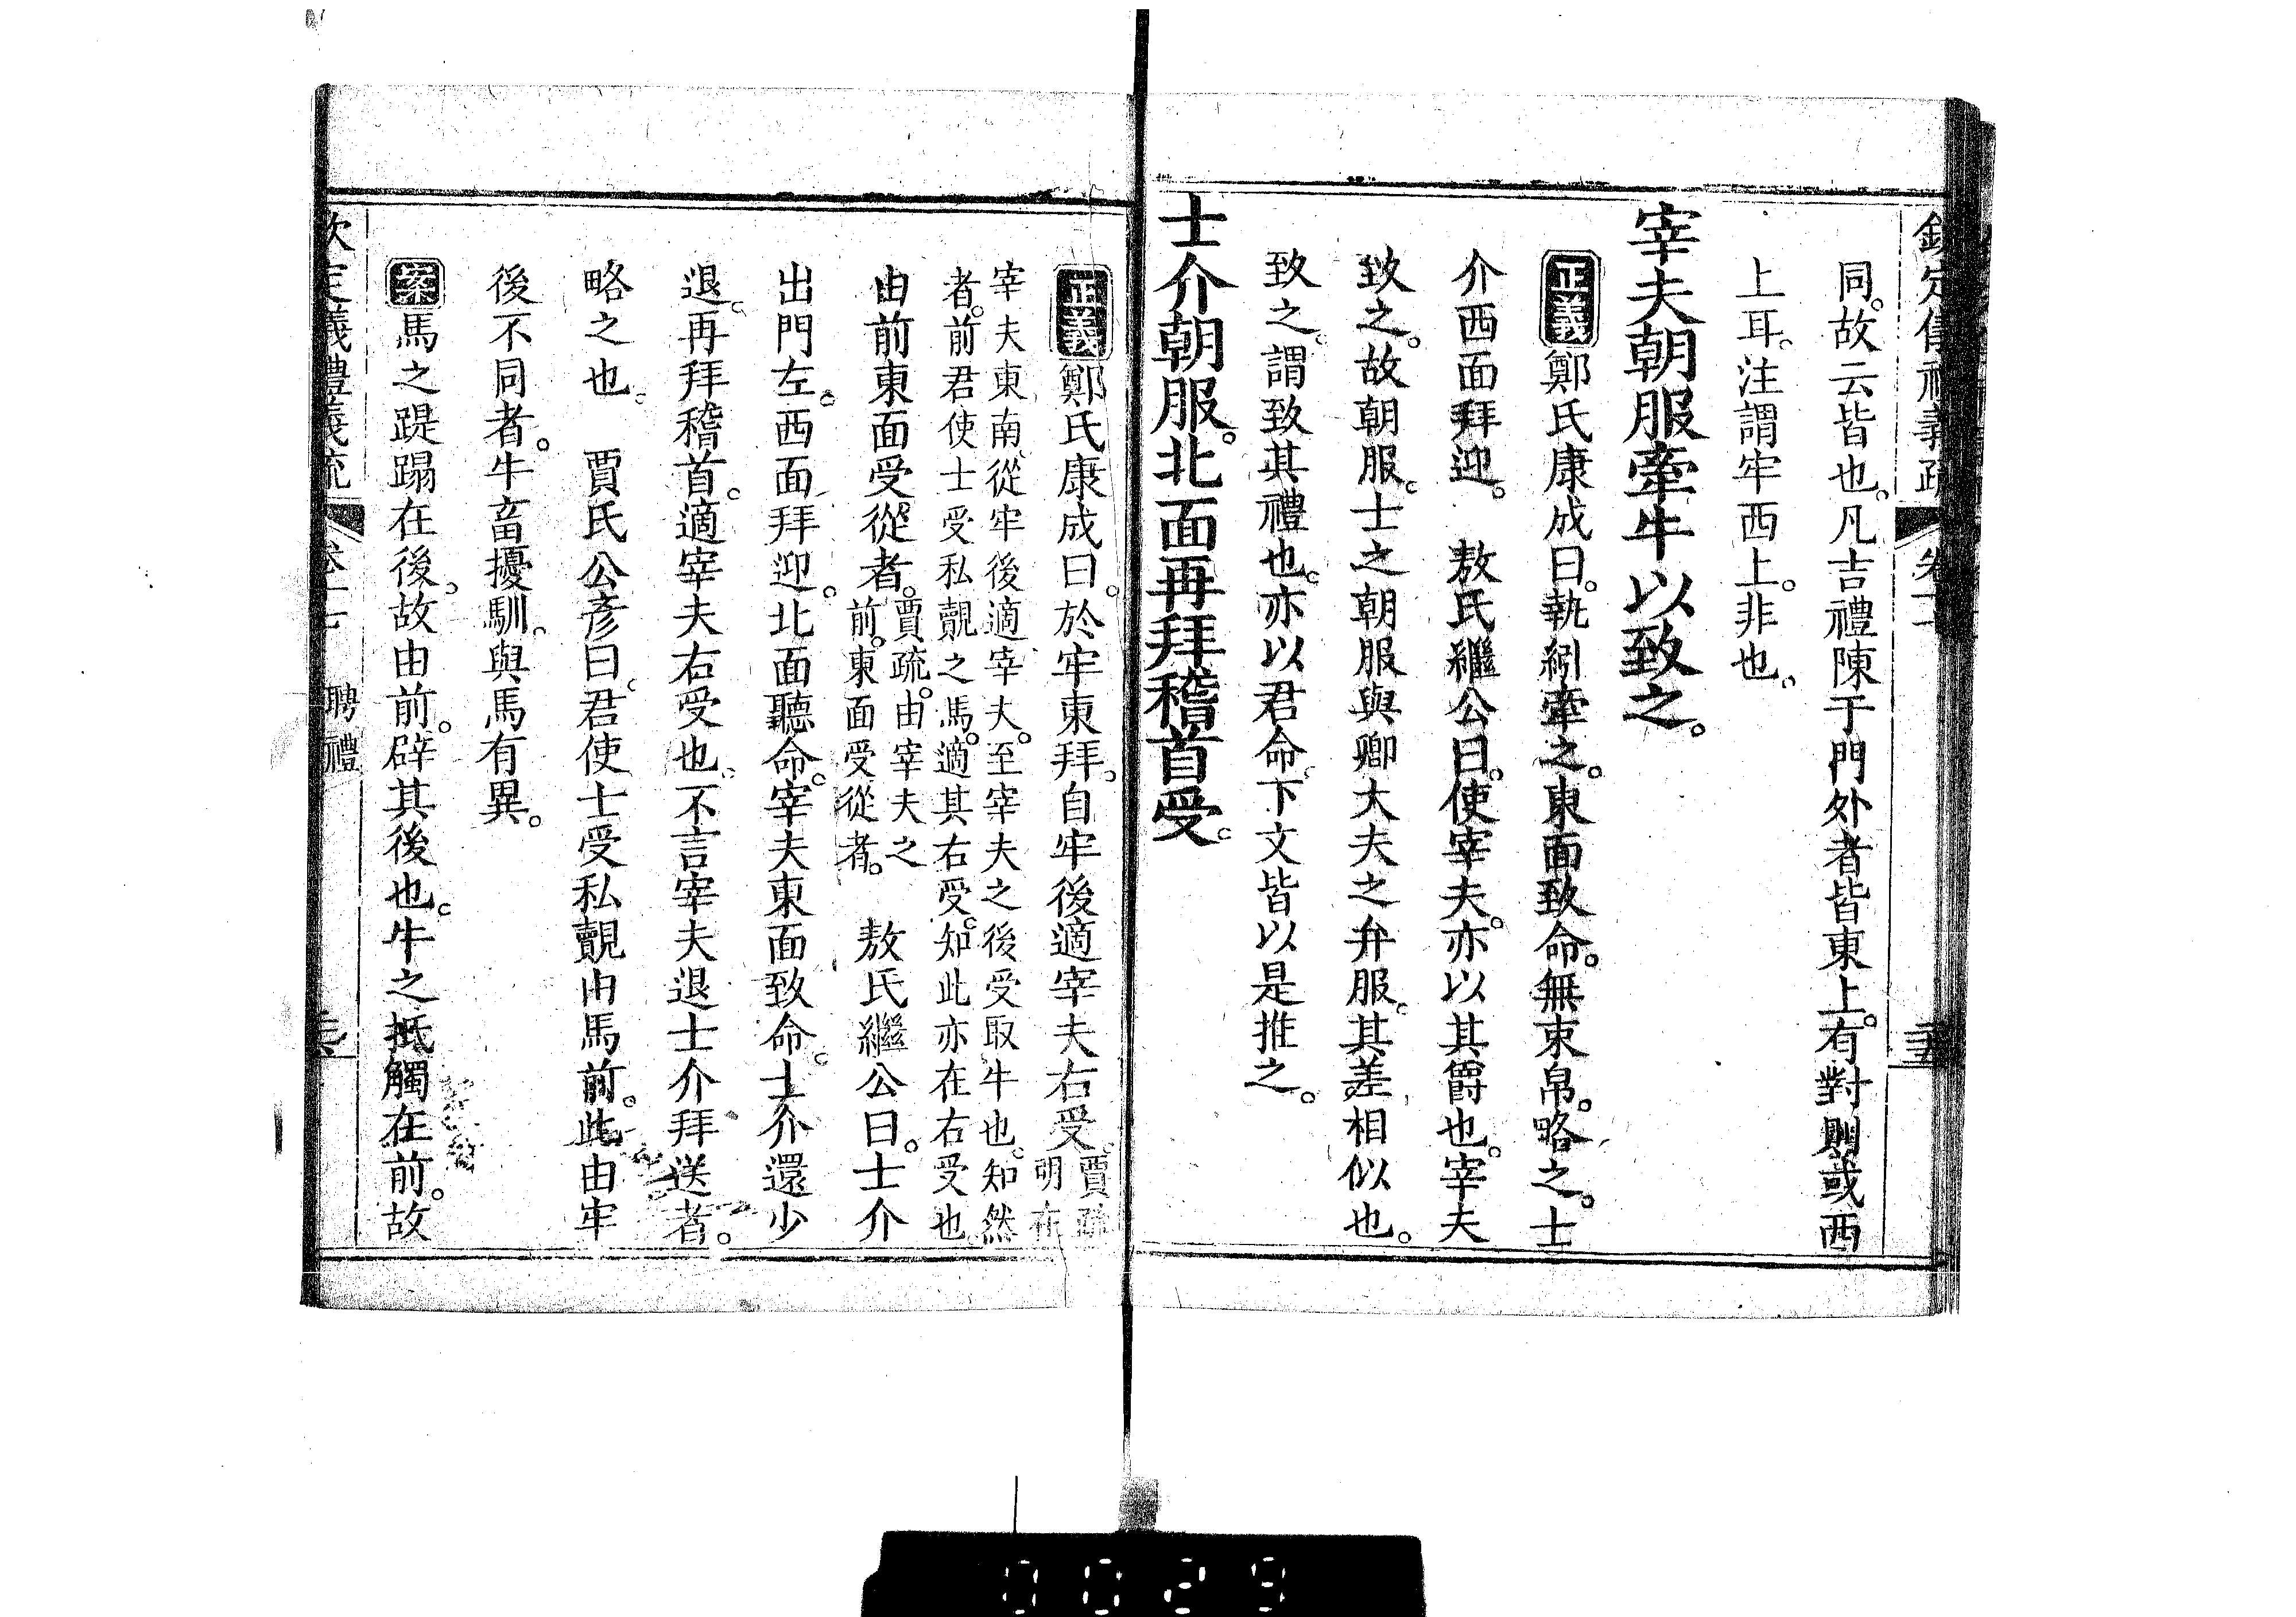 同。故云皆也。凡吉禮陳于門外者皆東上。有對則或西
上耳。注謂牢西上。非也。
宰夫朝服牽牛以致之。
正義鄭氏康成曰。執紖牽之。東面致命。無束帛。略之。士
介西面拜迎。　敖氏繼公曰。使宰夫。亦以其爵也。宰夫
致之。故朝服。士之朝服與卿大夫之弁服。其差相似也。
致之。謂致其禮也。亦以君命。下文皆以是推之。
士介朝服。北面再拜稽首受。
正義鄭氏康成曰。於牢東拜。自牢後適宰夫右受。賈疏
明在
宰夫東南。從牢後適宰夫。至宰夫之後受取牛也。知然
者。前君使士受私覿之馬。適其右受。知此亦在右受也
由前東面受從者。賈疏。由宰夫之
前。東面受從者。
敖氏繼公曰。士介
出門左。西面拜迎。北面聽命。宰夫東面致命。士介還少
退。再拜稽首。適宰夫右受也。不言宰夫退士介拜送者。
略之也。　賈氏公彥曰。君使士受私覿由馬前。此由牢
後不同者。牛畜擾馴。與馬有異。
案馬之踶蹋在後。故由前。辟其後也。牛之抵觸在前。故
欽定義禮義疏　卷十七　聘禮
0029